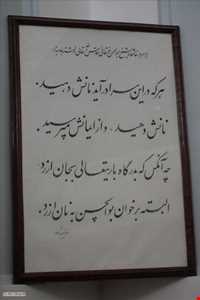 هر که در این سرا درآید نانش دهید.
نانش دهید، و از ایمانش مپرسید.
چه آنکس که بدرگاه باریتعالی بجان ارزد،
البته بر خوان بوالحسن به نان ارزد.